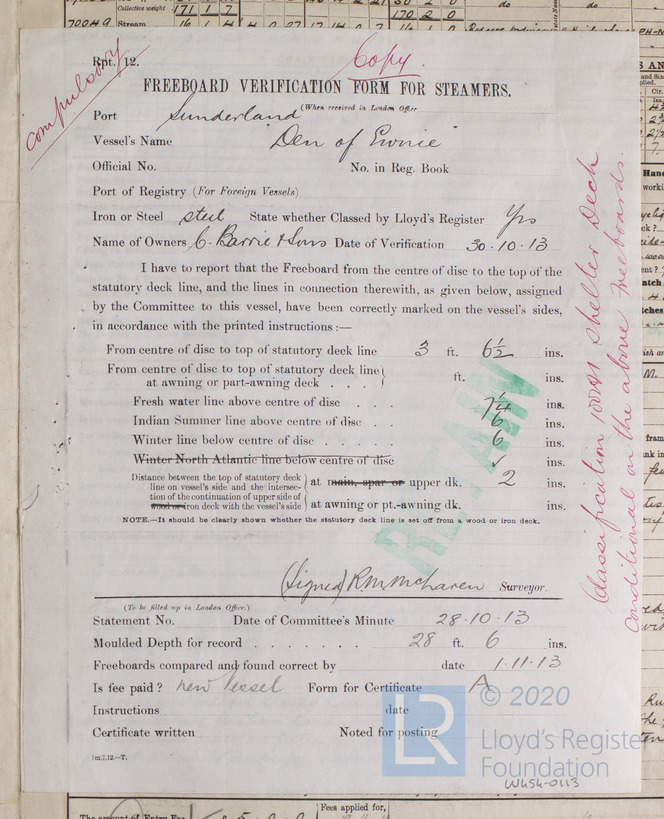 Collective weight 171 1 7
170 2 0
70049 Stream
Rpt. 12.
Copy.
compulsory
FREEBOARD VERIFICATION FORM FOR STEAMERS.
(When received in London Office
Port Sunderland
Vessel's Name Den of Ewnie
Official No. No. in Reg. Book
Port of Registry (For Foreign Vessels)
Iron or Steel steel State whether Classed by Lloyd's Register Yes
Name of Owners C. Barrie & Sons Date of Verification 30.10.13
I have to report that the Freeboard from the centre of disc to the top of the
statutory deck line, and the lines in connection therewith, as given below, assigned
by the Committee to this vessel, have been correctly marked on the vessel's sides,
in accordance with the printed instructions :—
From centre of disc to top of statutory deck line 3 ft. 6½ ins.
From centre of disc to top of statutory deck line
at awning or part-awning deck . . . ft. ins.
Fresh water line above centre of disc . . . 7¼ ins.
Indian Summer line above centre of disc . . 6 ins.
Winter line below centre of disc . . . . . 6 ins.
Winter North Atlantic line below centre of disc ✓ ins.
Distance between the top of statutory deck
line on vessel's side and the intersec-
tion of the continuation of upper side of
wood or iron deck with the vessel's side
at main, spar or upper dk. 2 ins.
at awning or pt.-awning dk. ins.
NOTE.—It should be clearly shown whether the statutory deck line is set off from a wood or iron deck.
RETAIN
(Signed) Surveyor.
(To be filled up in London Office.)
Statement No. Date of Committee's Minute 28.10.13
Moulded Depth for record . . . . . . . 28 ft. 6 ins.
Freeboards compared and found correct by date 1.11.13
Is fee paid? new vessel Form for Certificate A
Instructions date
Certificate written Noted for posting
1m,7,12.—T.
Classification 100A1 Shelter Deck
conditional on the above freeboards.
© 2020
LR
Lloyd's Register
Foundation
W454-0113
The amount of Entry Fee
Fees applied for,